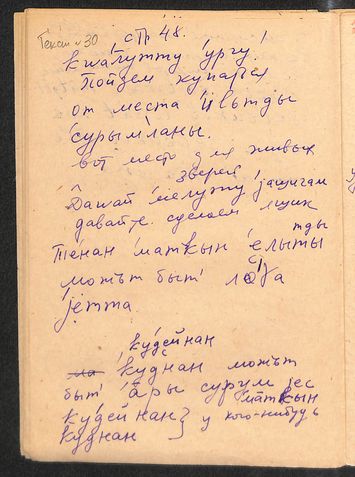 Текст N 30
стр 48.
квалутту ургу!
Пойдем купаться
от места илытды
сурымланы.
вот место для живых
зверей
Давай мелужу јащигам
давайте сделаем ящик
Тенан маткын елыты
тды
можът быт лоɣа
јетта.
кудейнан
куднан можът
быт ары сурум јес
маткын
кудейнан } у кого-нибудь
куднан